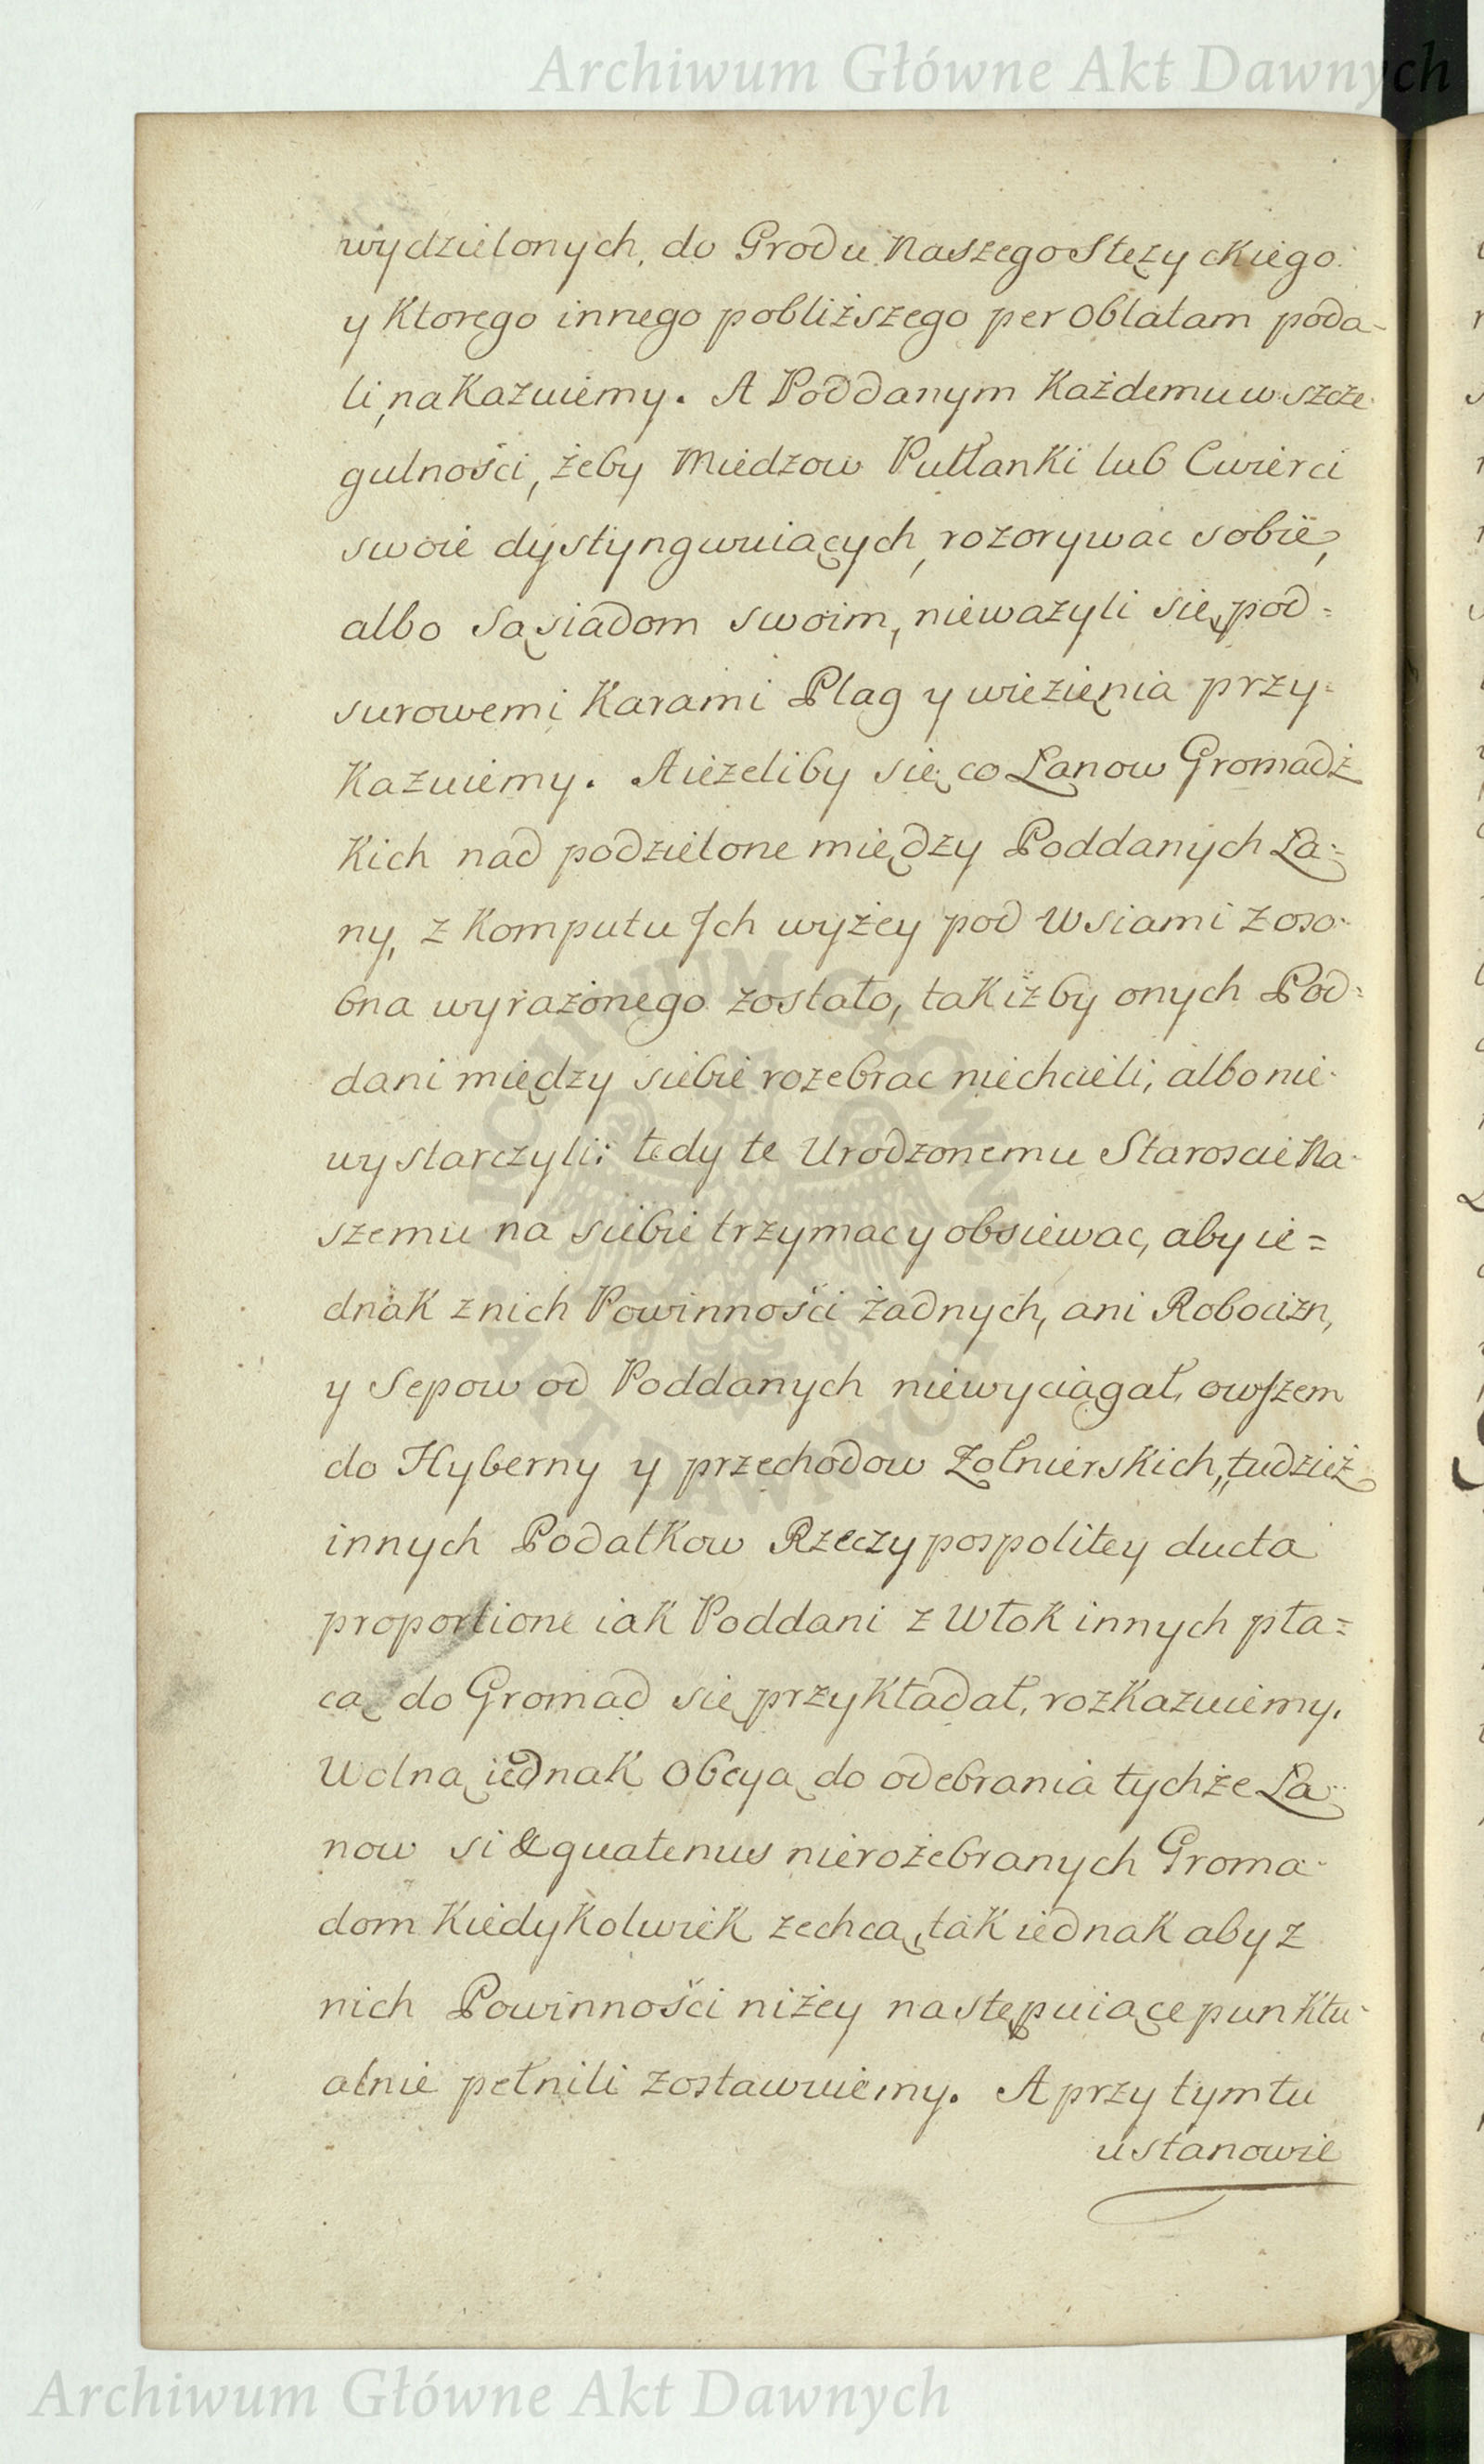 Archiwum Główne Akt Dawnych
wydzielonych, do Grodu Naszego Stęzyckiego
y Ktorego innego pobliższego per Oblatam poda-
li, nakazuiemy. A Poddanym Każdemu w szcze-
gulności, żeby Miedzow Pułłanki lub Cwierci
swoie dystyngwuiących, rozorywac sobie,
albo Sąsiadom swoim, nieważyli się, pod=
surowemi Karami Plag y więzienia przy=
Kazuiemy. A ieżeliby się co Łanow Gromadz
Kich nad podzielone między Poddanych Ła=
ny, z Komputu Ich wyżey pod Wsiami z oso-
bna wyrażonego zostało, tak iżby onych Pod=
dani między siebie rozebrac niechcieli, albo nie-
wystarczyli: tedy te Urodzonemu Staroscie Na-
szemu na siebie trzymac y obsiewac, aby ie=
dnak z nich Powinności żadnych, ani Robocizn,
y Sepow od Poddanych niewyciągał, owszem
do Hyberny y przechodow Żołnierskich, tudzież
innych Podatkow Rzeczypospolitey ducta
proportione iak Poddani z Włok innych pła=
cą do Gromad się przykładał, rozkazuiemy.
Wolną iednak Obcyą do odebrania tychże Ła-
now si & quatenus nierozebranych Groma-
dom Kiedykolwiek zechcą, tak iednak aby z
nich Powinności niżey następuiące punktu-
alnie pełnili zostawuiemy. A przy tym tu
ustanowie
ARCHIWUM GŁÓWNE AKT DAWNYCH
Archiwum Główne Akt Dawnych